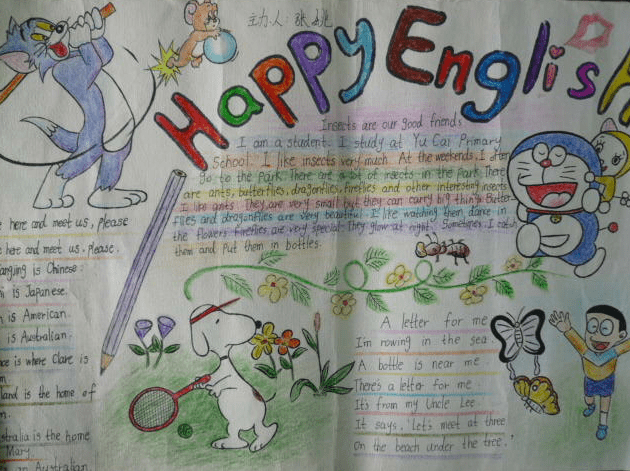 主力人:张姚
Happy English
Insects are our good friends
I am a student. I study at Yu Cai Primary
School. I like insects very much. At the weekends, I often
go to the park. There are a lot of insects in the park. There
are ants, butterflies, dragonflies, fireflies and other interesting insects.
I like ants. They are very small but they can carry big things. Butter-
flies and dragonflies are very beautiful. I like watching them dance in
the flowers. Fireflies are very special. They glow at night. Sometimes I catch
them and put them in bottles.
here and meet us, please
here and meet us, please.
is Chinese.
is Japanese.
is American.
is Australian.
is where Clare is
is the home of
is the home
Mary.
an Australian.
A letter for me
I'm rowing in the sea.
A bottle is near me
There's a letter for me.
It's from my Uncle Lee.
It says, "Let's meet at three
On the beach under the tree."